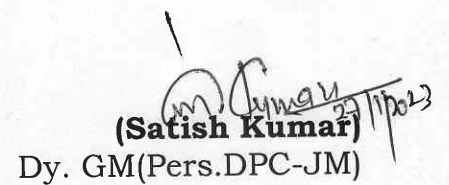 Kumar
27/1/2023
(Satish Kumar)
Dy. GM(Pers.DPC-JM)